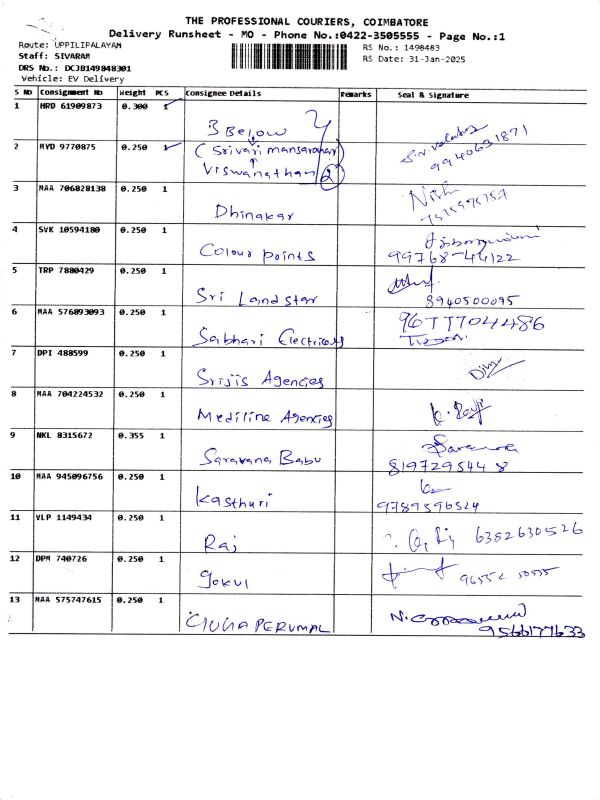 THE PROFESSIONAL COURIERS, COIMBATORE
Delivery Runsheet - MO - Phone No.:0422-3505555 - Page No.:1
Route: UPPILIPALAYAM
Staff: SIVARAM
DRS No.: DCJB149848301
Vehicle: EV Delivery
RS No.: 1498483
RS Date: 31-Jan-2025
S NO Consignment No Weight PCS Consignee Details Remarks Seal & Signature
1 HRD 61909873 0.300 1 3 Below
2 HYD 9770875 0.250 1 (Srivari mansarahar) Viswanathan 2 9940631871
3 MAA 706828138 0.250 1 Dhinakar
4 SVK 10594180 0.250 1 Colour points 99768-44122
5 TRP 7880429 0.250 1 Sri Landstar 8940500095
6 MAA 576893093 0.250 1 Sabhari Electricals 96TT704486
7 DPI 488599 0.250 1 Srijis Agencies
8 MAA 704224532 0.250 1 Mediline Agencies
9 NKL 8315672 0.355 1 Saravana Babu 8197295448
10 MAA 945096756 0.250 1 Kasthuri 9789596524
11 VLP 1149434 0.250 1 Raj 6382630526
12 DPM 740726 0.250 1 Gokul
13 MAA 575747615 0.250 1 9566177633